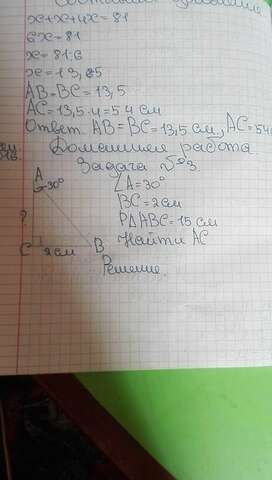 x+x+4x=81
6x=81
x=81:6
x=13,5
AB=BC=13,5
AC=13,5·4=54 см
Ответ AB=BC=13,5 см, AC=54
Домашняя работа.
Задача №3
A
30°
?
C 2см B
∠A=30°
BC=2см
PΔABC=15 см
Найти AC
Решение.